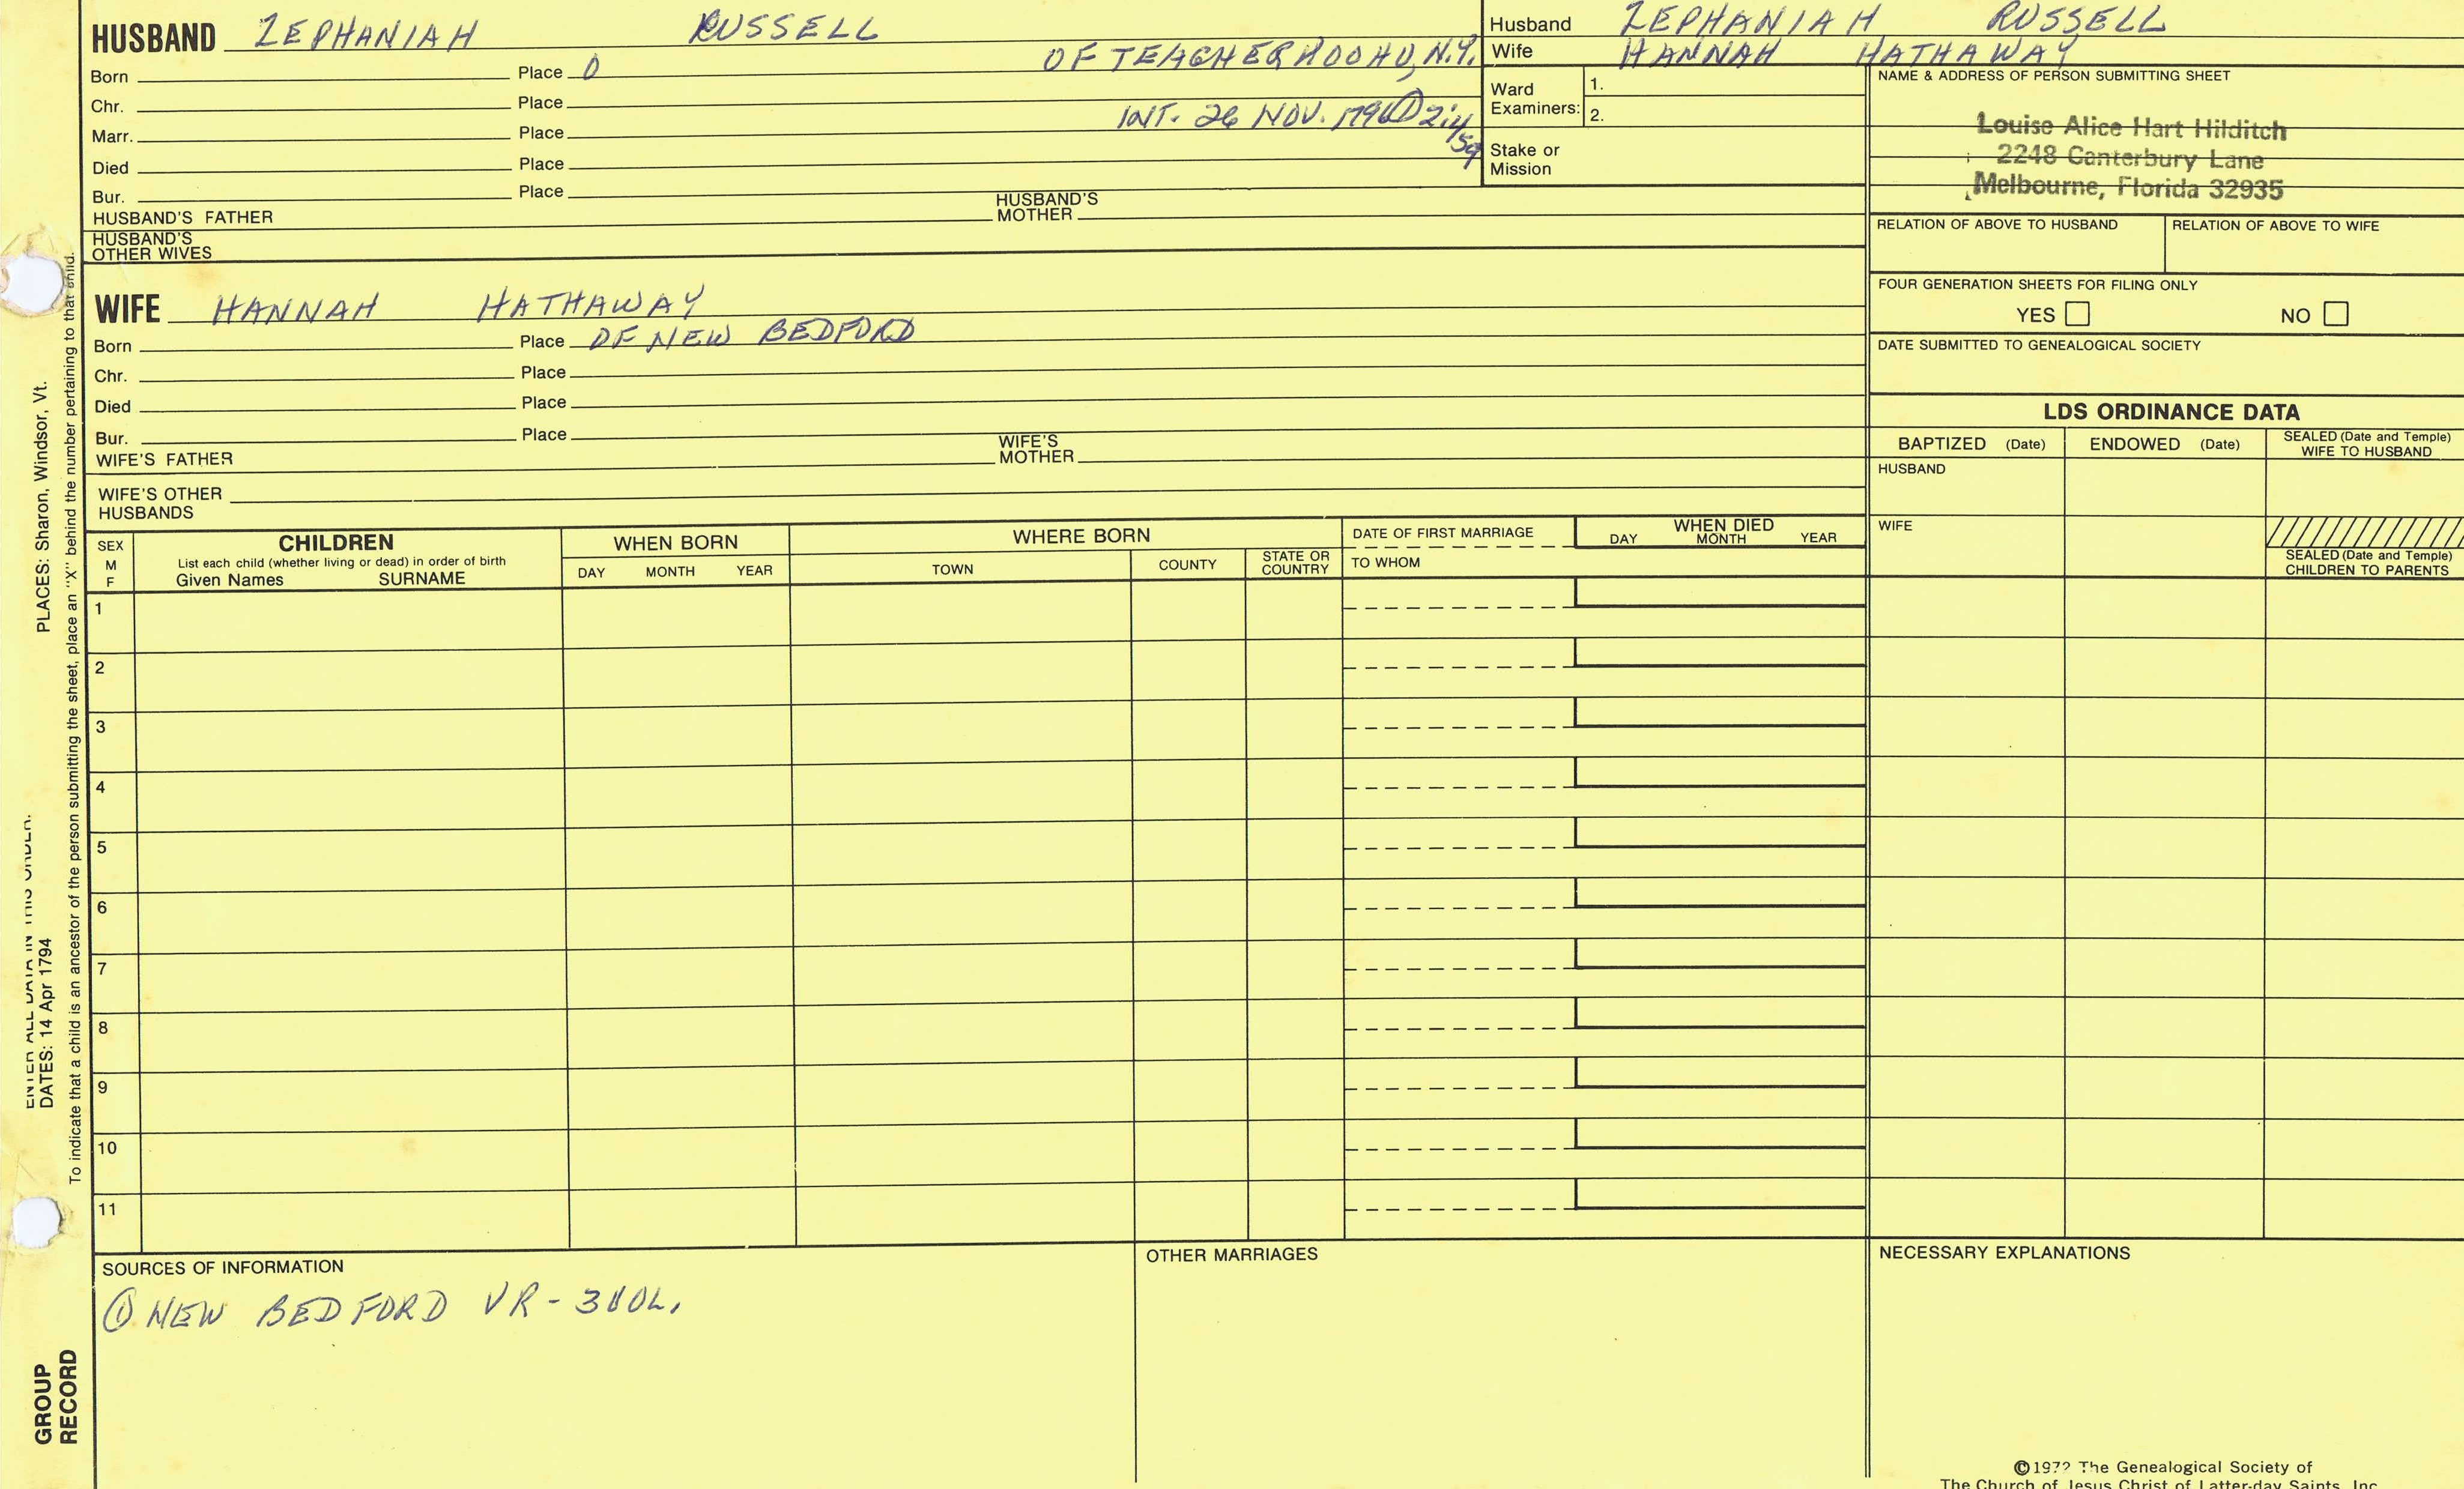 HUSBAND ZEPHANIAH RUSSELL
Born Place O OF TEACHERHOOHU, N.Y.
Chr. Place
Marr. Place INT. 26 NOV. 1796 ① 2:1/59
Died Place
Bur. Place
HUSBAND'S FATHER HUSBAND'S MOTHER
HUSBAND'S OTHER WIVES
WIFE HANNAH HATHAWAY
Born Place OF NEW BEDFORD
Chr. Place
Died Place
Bur. Place
WIFE'S FATHER WIFE'S MOTHER
WIFE'S OTHER HUSBANDS
Husband ZEPHANIAH RUSSELL
Wife HANNAH HATHAWAY
Ward Examiners: 1.
2.
Stake or Mission
NAME & ADDRESS OF PERSON SUBMITTING SHEET
Louise Alice Hart Hilditch
2248 Canterbury Lane
Melbourne, Florida 32935
RELATION OF ABOVE TO HUSBAND RELATION OF ABOVE TO WIFE
FOUR GENERATION SHEETS FOR FILING ONLY
YES NO
DATE SUBMITTED TO GENEALOGICAL SOCIETY
LDS ORDINANCE DATA
BAPTIZED (Date) ENDOWED (Date) SEALED (Date and Temple) WIFE TO HUSBAND
HUSBAND
WIFE
SEALED (Date and Temple) CHILDREN TO PARENTS
SEX M F
CHILDREN
List each child (whether living or dead) in order of birth
Given Names SURNAME
WHEN BORN
DAY MONTH YEAR
WHERE BORN
TOWN COUNTY STATE OR COUNTRY
DATE OF FIRST MARRIAGE
TO WHOM
WHEN DIED
DAY MONTH YEAR
1
2
3
4
5
6
7
8
9
10
11
SOURCES OF INFORMATION
① NEW BEDFORD VR-
OTHER MARRIAGES
NECESSARY EXPLANATIONS
©1972 The Genealogical Society of
The Church of Jesus Christ of Latter-day Saints, Inc.
ENTER ALL DATA IN THIS ORDER:
DATES: 14 Apr 1794 PLACES: Sharon, Windsor, Vt.
To indicate that a child is an ancestor of the person submitting the sheet, place an "X" behind the number pertaining to that child.
GROUP
RECORD